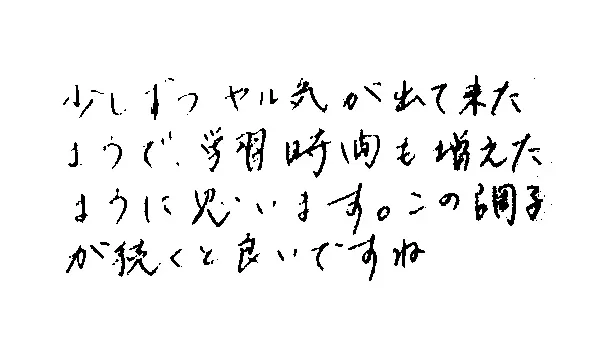 少しずつヤル気が出て来た
ようで、学習時間も増えた
ように思います。この調子
が続くと良いですね